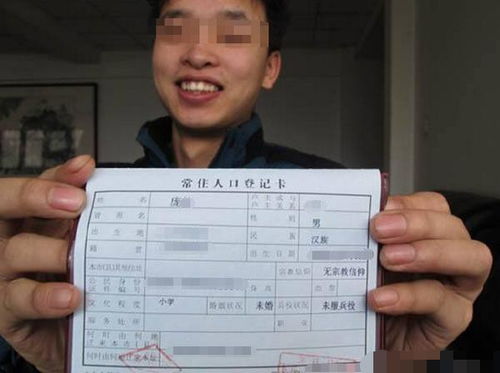 常住人口登记卡
姓名
户主或与户主关系
曾用名 性别 男
出生地 民族 汉族
籍贯 出生日期
本市(县)其他住址 宗教信仰 无宗教信仰
公民身份证件编号 身高 血型
文化程度 小学 婚姻状况 未婚 兵役状况 未服兵役
服务处所 职业
何时由何地迁来本市(县)
何时由何地迁来本址